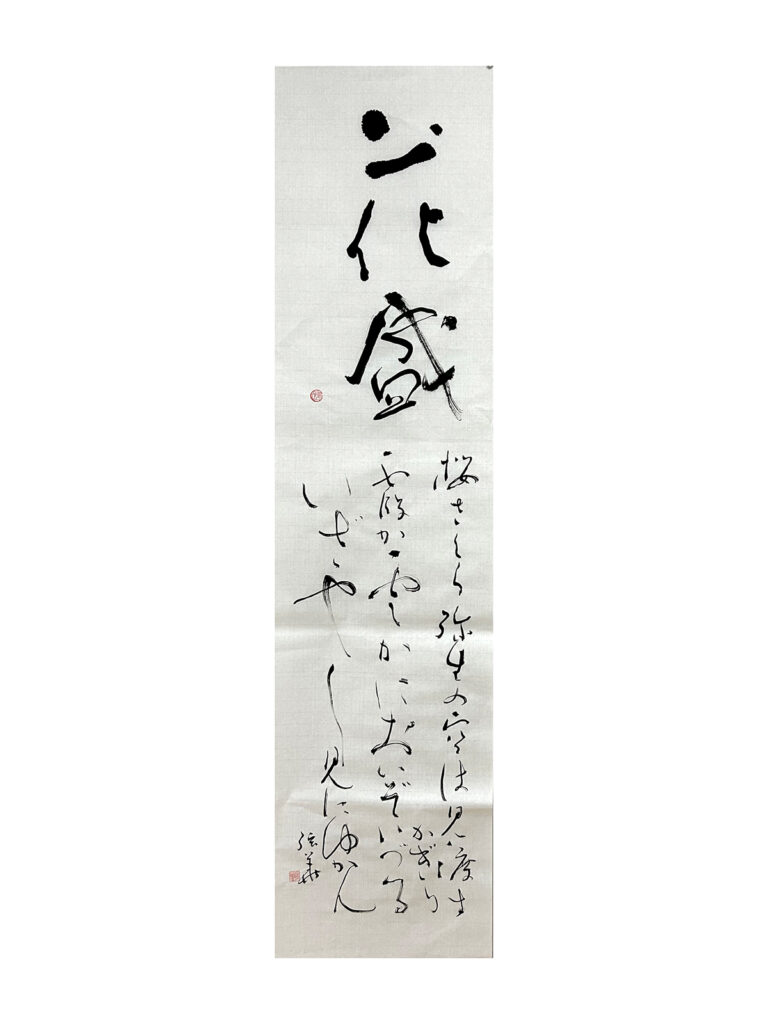 花盛
桜さくら弥生の空は見渡す
かぎり
霞か雲かにおいぞいづる
いざや〳〵見にゆかん